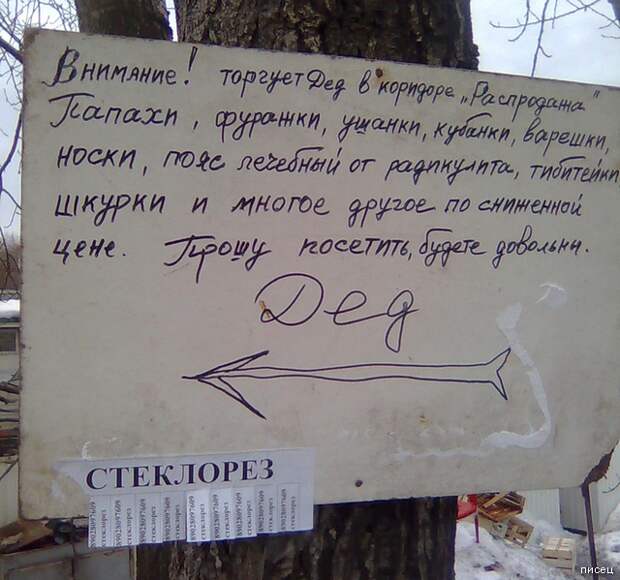 Внимание! торгует Дед в коридоре „Распродажа"
Папахи, фуражки, ушанки, кубанки, варешки,
носки, пояс лечебный от радикулита, тибитейки
шкурки и многое другое по сниженной
цене. Прошу посетить, будете довольны.
Дед
СТЕКЛОРЕЗ
стеклорез
89028097609
стеклорез
89028097609
стеклорез
89028097609
стеклорез
89028097609
стеклорез
89028097609
стеклорез
89028097609
стеклорез
89028097609
писец